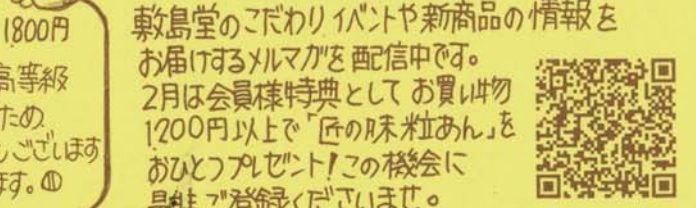 1800円
高等級
ため
しございます
ます。⑪
敷島堂のこだわりイベントや新商品の情報を
お届けするメルマガを配信中です。
2月は会員様特典としてお買い物
1200円以上で「匠の味粒あん」を
おひとつプレゼント!この機会に
是非ご登録くださいませ。